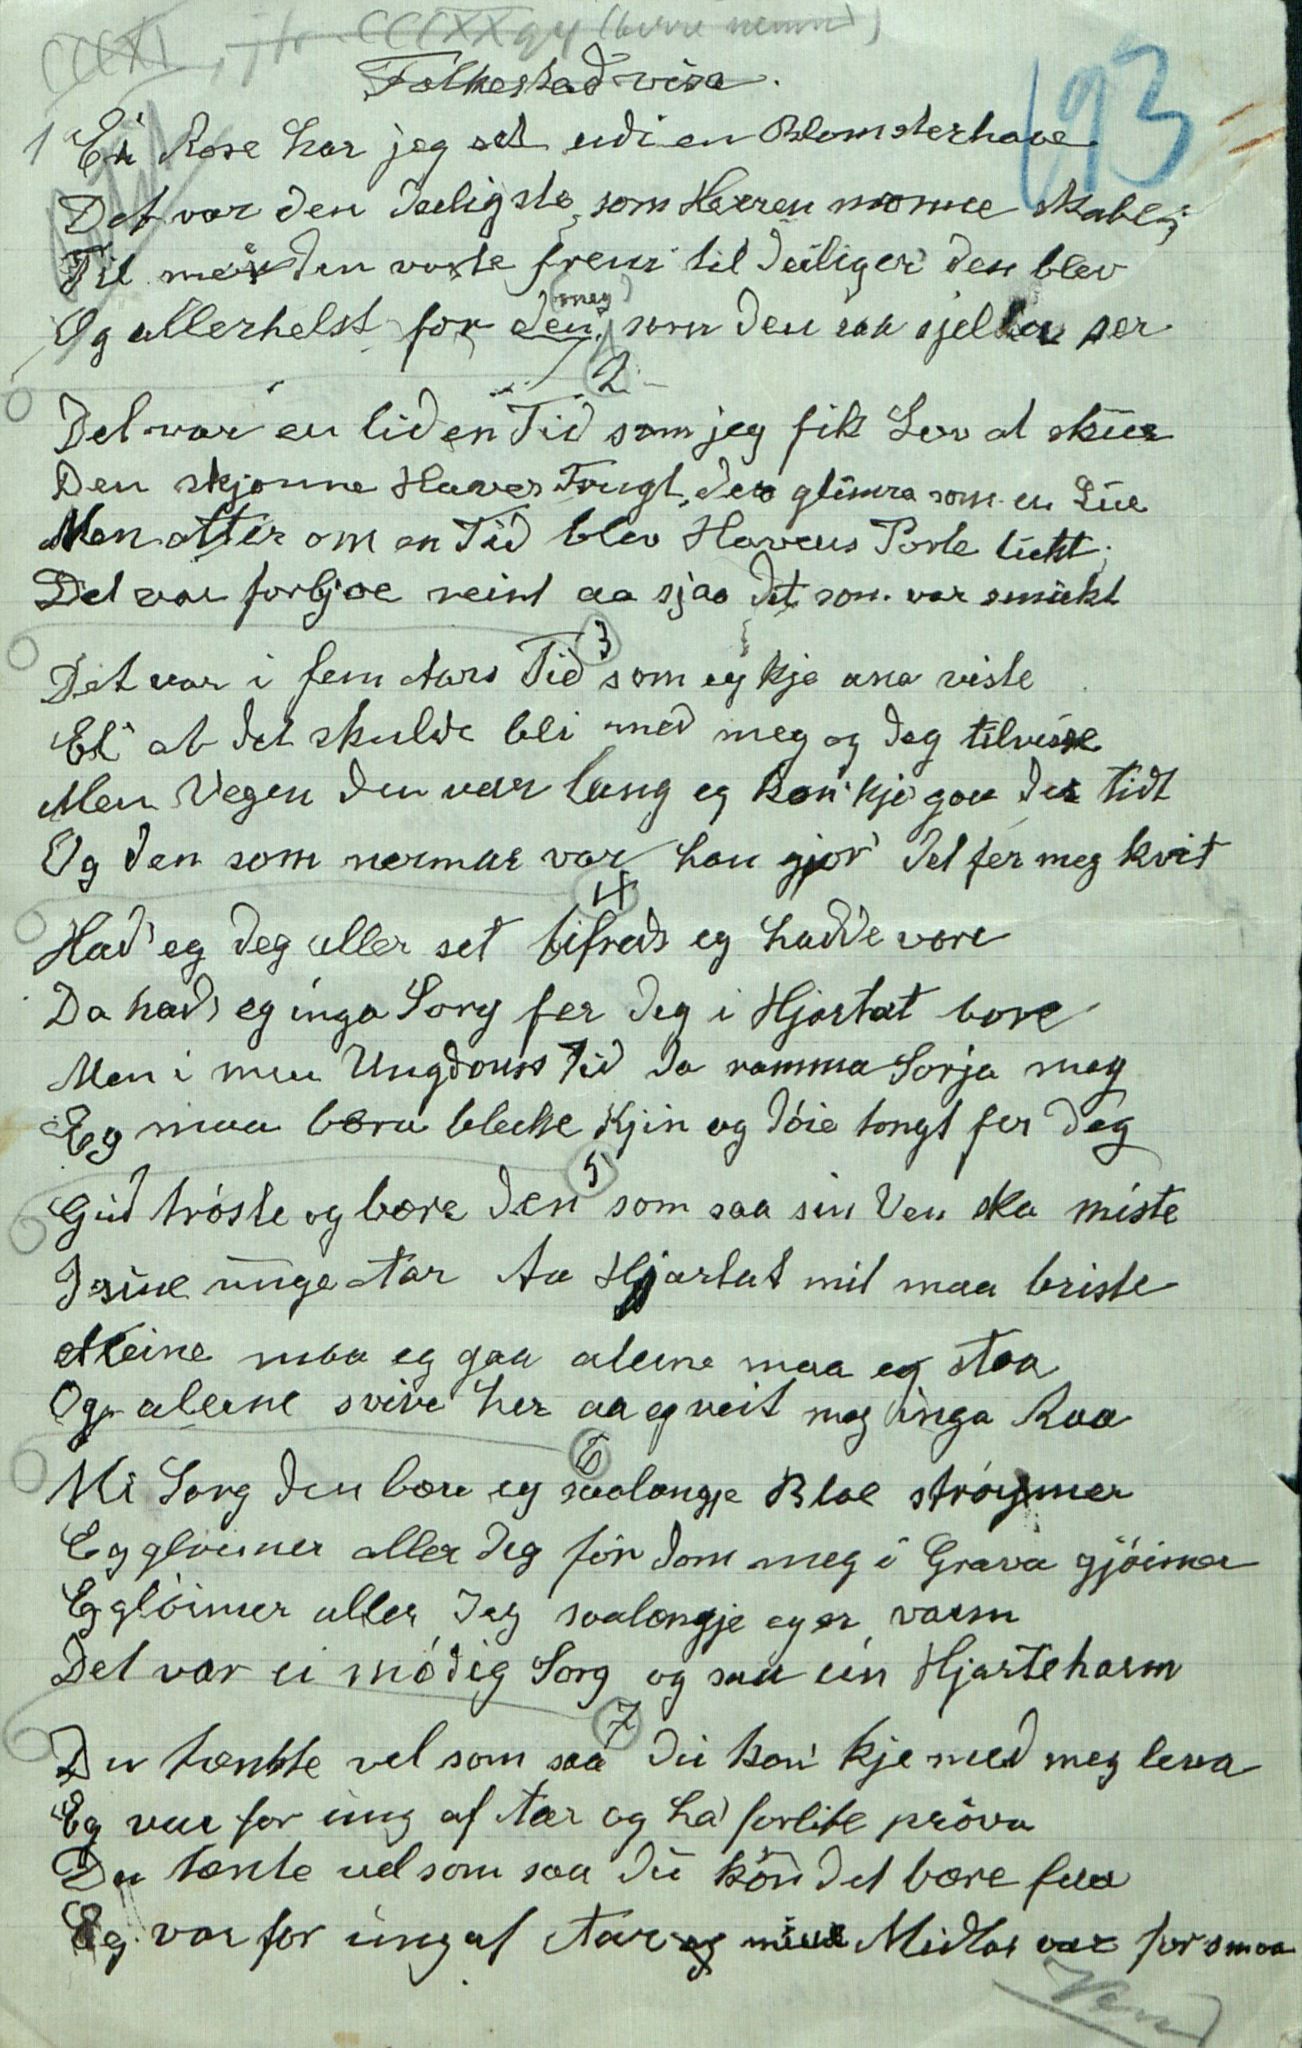 CCCXI, jfr. CCCXX (berre nemnd)
193
Folkestadvisa.
1 Ei Rose har jeg set udi en Blomsterhave
Det var den deiligste som Herren monne skabe;
Til meir den voxte frem til deiliger' den blev
Og allerhelst for den (meg) som den saa sjella ser
2
Det var en liden Tid som jeg fik Lov at skue
Den skjonne Haves Frugt, den glimra som en Lue
Men atter om en Tid blev Havens Porte lukt;
Det var forbjoe reint aa sjaa det som var smukt
3
Det var i fem Aars Tid som eg kje ana viste
El' at det skulde bli med meg og deg tilvisse
Men Vegen den var lang eg kon' kje gaa der tidt
Og den som nermar var han gjor' det fer meg kvit
4
Had' eg deg aller set tifreds eg hadde vore
Da had' eg inga Sorg fer deg i Hjartat bore
Men i min Ungdoms Tid da ramma Sorja meg
Eg maa bæra bleike Kjin og döie tongt fer deg
5
Gud tröste og bære den som saa sin Ven ska miste
I sine unge Aar Aa Hjartat mit maa briste
Aleine maa eg gaa aleine maa eg staa
Og aleine svive her aa eg veit meg inga Raa
6
Mi Sorg den bær eg saalangje Bloe ströymer
Eg gløimer aller deg för dom meg i Grava gjöimer
Eg glöimer aller deg saalangje eg er varm
Det var ei mödig Sorg og saa ein Hjarteharm
7
Du tænkte vel som saa du kon' kje med meg leva
Eg var for ung af Aar og ha' forlite pröva
Du tænte vel som saa du kön det bære faa
Eg var for ung af Aar og mine Midlar var for smaa
Vend